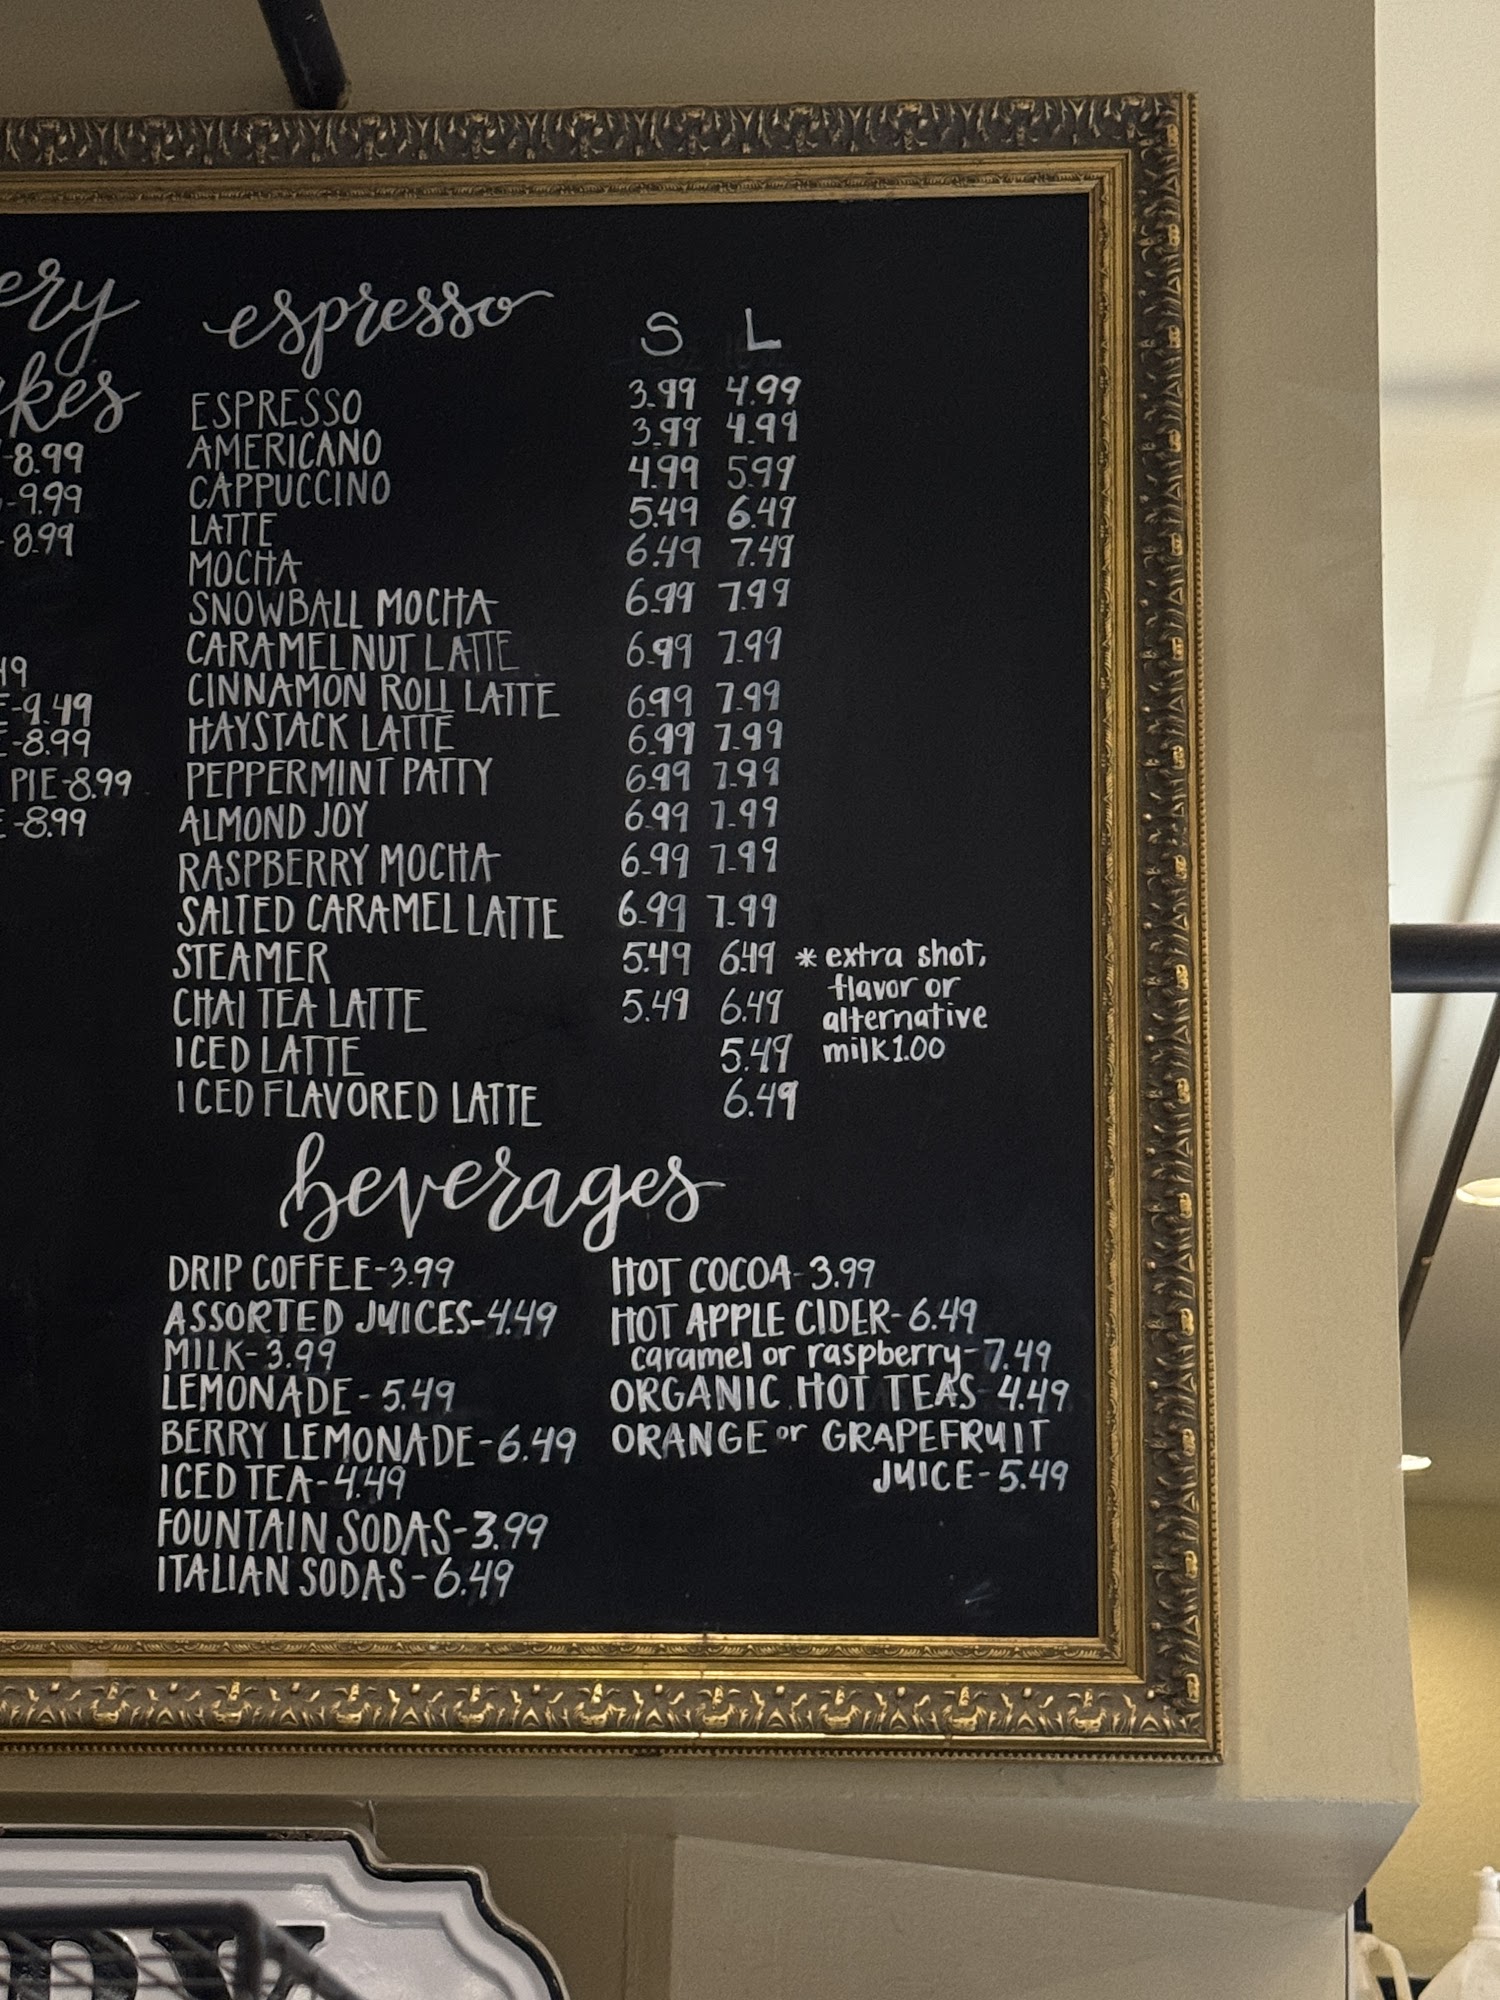 espresso S L
ESPRESSO 3.99 4.99
AMERICANO 3.99 4.99
CAPPUCCINO 4.99 5.99
LATTE 5.49 6.49
MOCHA 6.49 7.49
SNOWBALL MOCHA 6.99 7.99
CARAMEL NUT LATTE 6.99 7.99
CINNAMON ROLL LATTE 6.99 7.99
HAYSTACK LATTE 6.99 7.99
PEPPERMINT PATTY 6.99 7.99
ALMOND JOY 6.99 7.99
RASPBERRY MOCHA 6.99 7.99
SALTED CARAMEL LATTE 6.99 7.99
STEAMER 5.49 6.49
CHAI TEA LATTE 5.49 6.49
ICED LATTE 5.49
ICED FLAVORED LATTE 6.49
* extra shot,
flavor or
alternative
milk 1.00
beverages
DRIP COFFEE-3.99
ASSORTED JUICES-4.49
MILK-3.99
LEMONADE-5.49
BERRY LEMONADE-6.49
ICED TEA-4.49
FOUNTAIN SODAS-3.99
ITALIAN SODAS-6.49
HOT COCOA-3.99
HOT APPLE CIDER-6.49
caramel or raspberry-7.49
ORGANIC HOT TEAS-4.49
ORANGE or GRAPEFRUIT
JUICE-5.49
ery
kes
-8.99
-9.99
-8.99
49
E-9.49
E-8.99
PIE-8.99
E-8.99